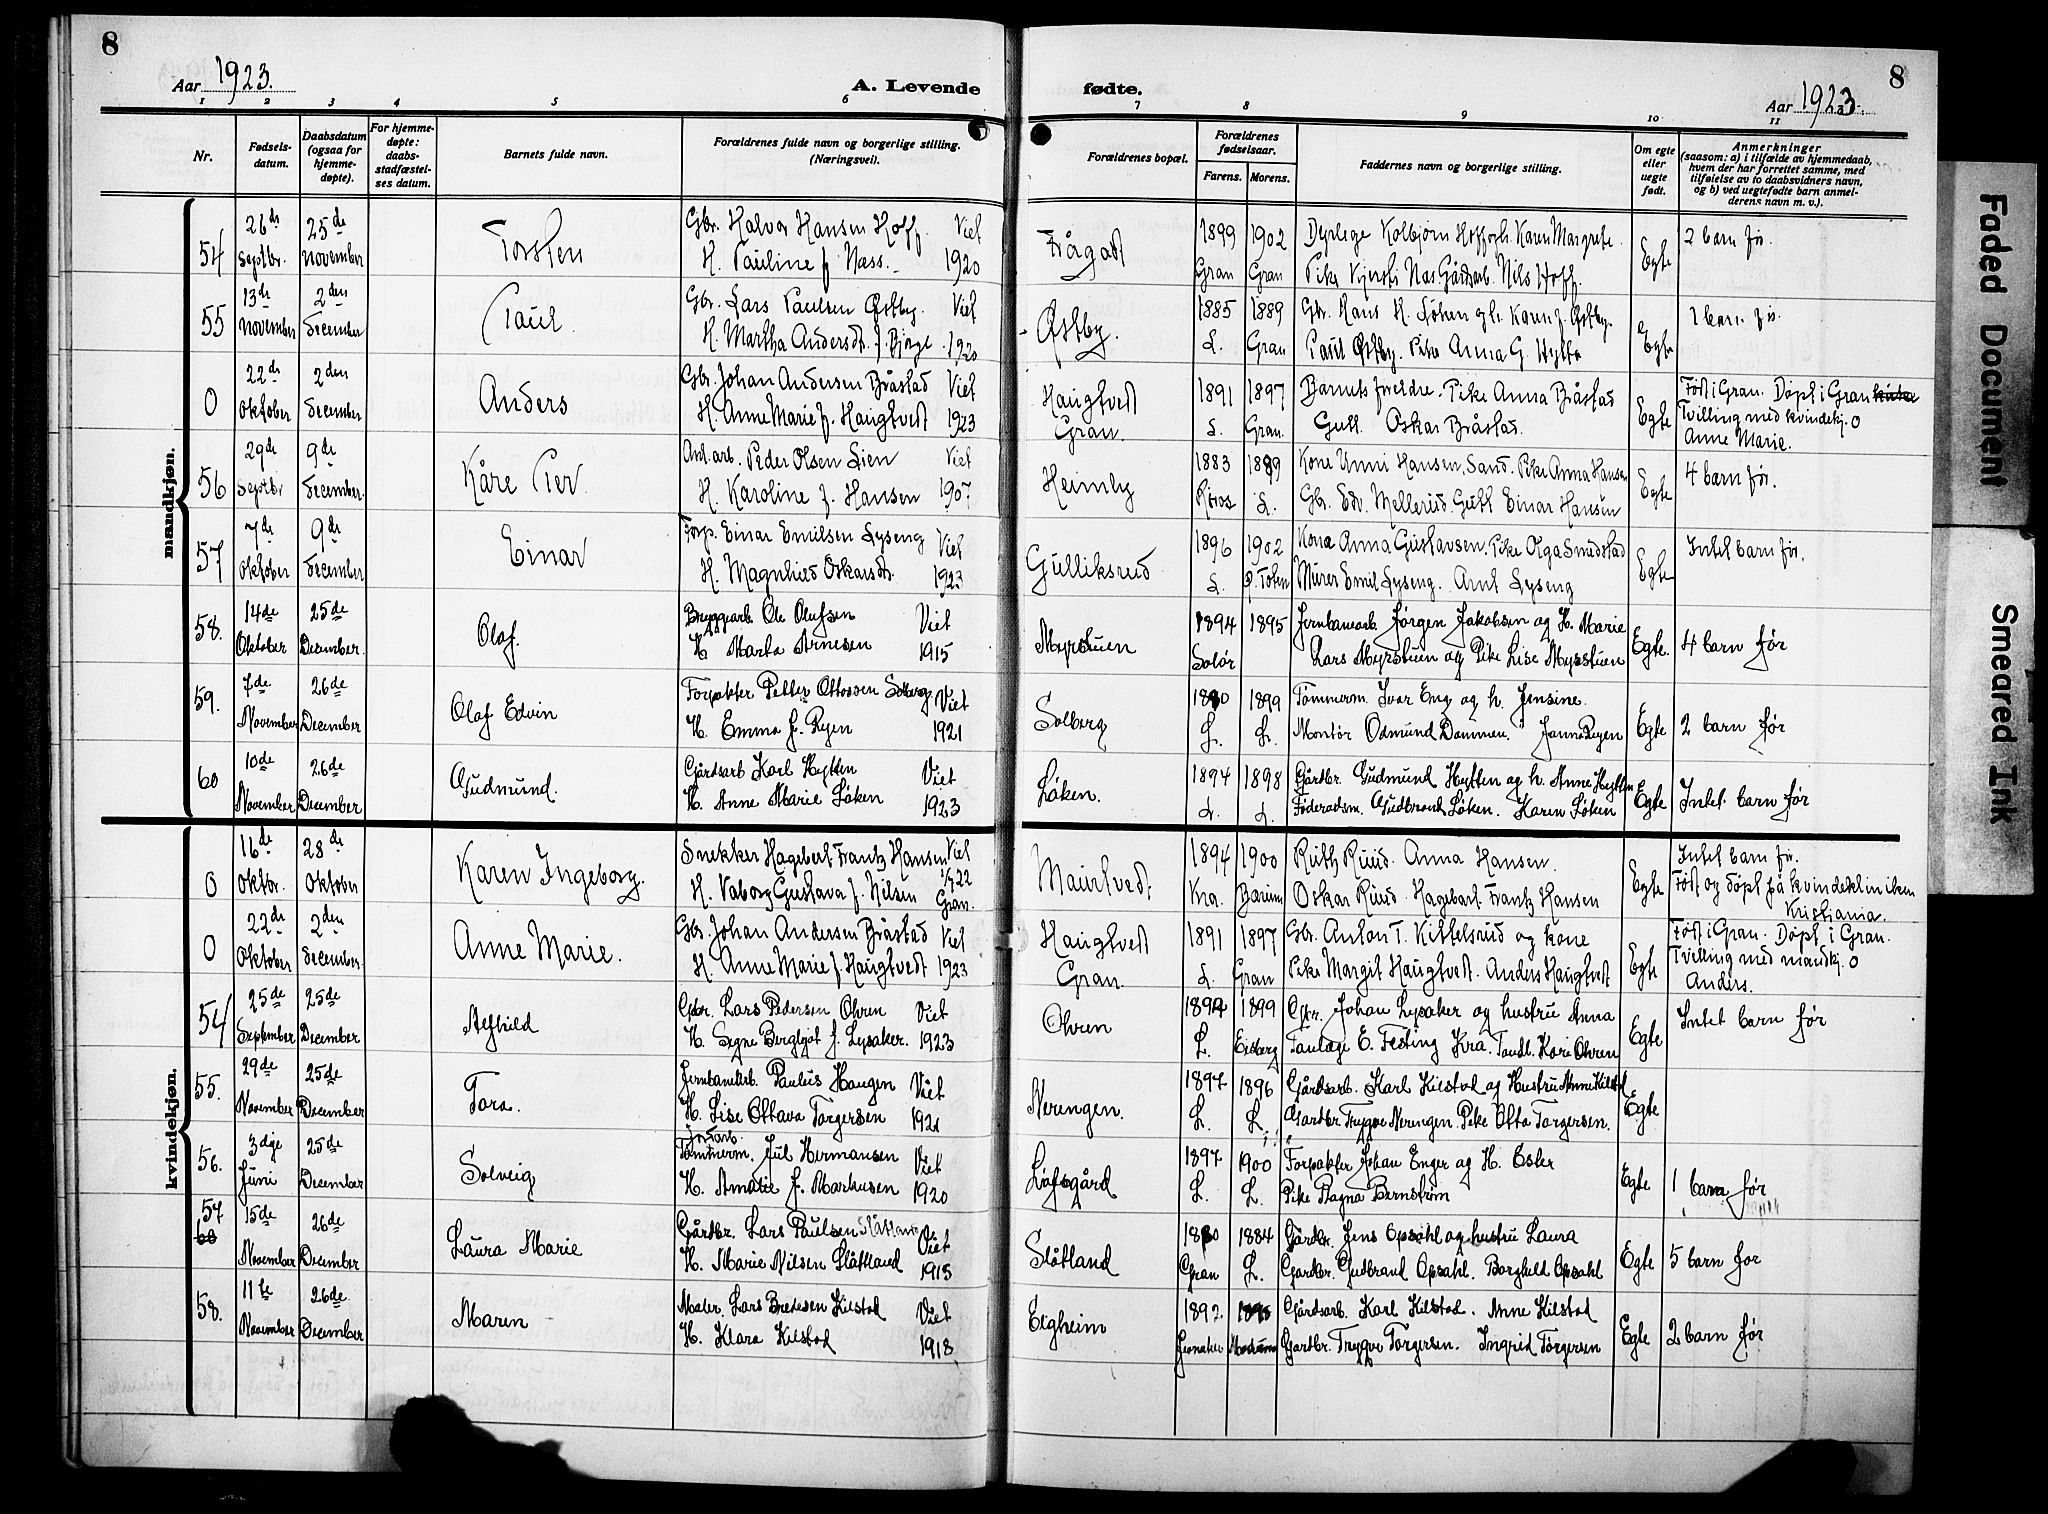 8
Aar 1923.
A. Levende
1 2 3 4 5 6
Nr.
Fødsels-
datum.
Daabsdatum
(ogsaa for
hjemme-
døpte).
For hjemme-
døpte:
daabs-
stadfæstel-
ses datum.
Barnets fulde navn.
Forældrenes fulde navn og borgerlige stilling.
(Næringsvei).
mandkjøn.
54 26de Septbr. 25de November Torsten
Gbr. Halvor Hansen Hoff. Viet
H. Pauline f. Næss. 1920
55 13de November 2den December Paul.
Gbr. Lars Paulsen Østby. Viet
H. Martha Andersdtr. f. Bjøge 1920
0 22de Oktober 2den December Anders
Gbr. Johan Andersen Bråstad Viet
H. Anne Marie f. Haugtvedt 1923
56 29de Septbr 9de December. Kåre Per
Anl.arb. Peder Olsen Lien Viet
H. Karoline f. Hansen 1907
57 7de Oktober 9de December Einar
Forp. Einar Emilsen Lyseng Viet
H. Magnhild Oskarsdtr. 1923
58. 14de Oktober 25de December. Olaf.
Bryggearb. Ole Olufsen Viet
H. Marta Arnesen 1915
59. 7de November 26de December Olaf Edvin
Forpakter Petter Ottossen Solberg Viet
H. Emma f. Ryen 1921
60 10de November 26de December Gudmund.
Gårdsarb Karl Hytten Viet
H. Anne Marie Løken 1923
kvindekjøn.
0 16de Oktbr. 28de Oktober Karen Ingeborg.
Snekker Hagebart Frantz Hansen Viet 1922
H. Vaborg Gustava f. Nilsen Gran.
0 22de Oktober 2den December. Anne Marie.
Gbr. Johan Andersen Bråstad Viet
H. Anne Marie f. Haugtvedt 1923
54 25de September 25de December Alfhild
Gbr. Lars Pedersen Ohren Viet
H. Signe Bergljot f. Lysaker. 1923
55. 29de November 25de December Tora.
Jernbanearb. Paulus Haugen Viet
H. Lise Ottava Torgersen 1921
56. 3dje Juni 25de December Solveig
Jordarb.
Tømmerm. Jul Hermansen Viet
H. Amalie f. Markusen 1920
57 60 15de November 26de December Laura Marie
Gårdbr. Lars Paulsen Slåttland Viet
H. Marie Nilsen Slåttland 1915
58. 11te November 26de December Maren
Maler. Lars Bredesen Kilstad Viet
H. Klara Kilstad 1918
8
fødte.
Aar 1923.
7 8 9 10 11
Forældrenes bopæl.
Forældrenes
fødselsaar.
Farens. Morens.
Faddernes navn og borgerlige stilling.
Om egte
eller
uegte
født.
Anmerkninger
(saasom: a) i tilfælde av hjemmedaab,
hvem der har forrettet samme, med
tilføielse av to daabsvidners navn,
og b) ved uegtefødte barn anmel-
derens navn m. v.).
Frågot 1899 Gran 1902 Gran
Dyrlege Kolbjørn Hoff og h. Karen Margrete.
Pike Kjersti Næs. Gårdsarb. Nils Hoff.
Egte 2 barn før.
Østby. 1885 L. 1889 Gran
Gbr. Hans H. Løken og h. Karen f. Østby.
Paul Østby. Pike Anna G. Hytta
Egte 1 barn før.
Haugtvedt Gran. 1891 L. 1897 Gran.
Barnets foreldre. Pike Anna Bråstad
Gutt. Oskar Bråstad.
Egte Født i Gran. Døpt i Gran
Tvilling med kvindekj. 0
Anne Marie.
Heimly 1883 Røros 1889 L.
Kone Unni Hansen, Sand. Pike Anna Hansen
Gbr. Edv. Mellerud. Gutt Einar Hansen
Egte 4 barn før.
Gulliksrud 1896 L. 1902 Ø. Toten
Kone Anna Gustavsen. Pike Olga Smedstad
Murer Emil Lyseng. Arnt Lyseng
Egte Intet barn før.
Myrstuen 1894 Solør 1895
Jernbanearb Jørgen Jakobsen og H. Marie
Lars Myrstuen og Pike Lise Myrstuen
Egte. 4 barn før
Solberg 1880 L. 1899 L.
Tømmerm. Iver Eng og h. Jensine.
Montør Odmund Dammen. Janna Ryen
Egte 2 barn før
Løken. 1894 L. 1898 L.
Gårdbr. Gudmund Hytten og h. Anne Hytten
Føderådsm. Gudbrand Løken. Karen Løken
Egte Intet barn før
1894 Kra. 1900 Bærum
Ruth Ruud. Anna Hansen.
Oskar Ruud. Hagebart Frantz Hansen
Egte Intet barn før.
Født og døpt på kvindeklinikken
Kristiania.
Haugtvedt Gran. 1891 L. 1897 Gran
Gbr. Anton T. Kittelsrud og kone
Pike Margit Haugtvedt. Anders Haugtvedt
Egte Født i Gran. Døpt i Gran.
Tvilling med mandkj. 0
Anders.
Ohren 1894 L. 1899 Eidsberg
Gbr. Johan Lysaker og hustru Anna
Tanlæge E. Festing Kra. Tandl. Kari Ohren
Egte Intet barn før
Nerengen. 1897 L. 1896 L.
Gårdsarb. Karl Kilstad og Hustru Anne Kilstad
Gårdbr. Trygve Nerengen. Pike Otta Torgersen.
Egte
Løfsgård 1897 L. 1900 L.
Forpakter Johan Enger og H. Ester
Pike Ragna Bernstrøm
Egte 1 barn før
Slåtland 1880 Gran 1884 L.
Gårdbr. Jens Opsahl og hustru Laura
Gardbr. Gudbrand Opsahl. Borghild Opsahl
Egte 5 barn før
Eigheim 1892 Jevnaker Modum
Gårdsarb. Karl Kilstad. Anne Kilstad
Gardbr. Trygve Torgersen. Ingrid Torgersen
Egte 2 barn før
Faded Document
Smeared Ink